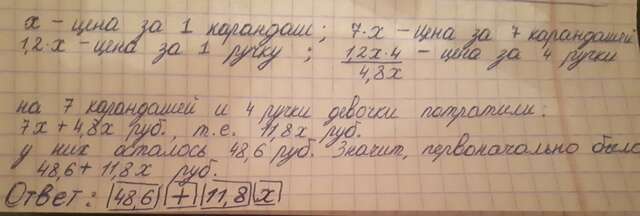 x - цена за 1 карандаш; 7·x - цена за 7 карандашей
1,2·x - цена за 1 ручку; 1,2x·4 - цена за 4 ручки
4,8x
на 7 карандашей и 4 ручки девочки потратили:
7x + 4,8x руб., т.е. 11,8x руб.
у них осталось 48,6 руб. Значит, первоначально было
48,6 + 11,8x руб.
Ответ: 48,6 + 11,8 x